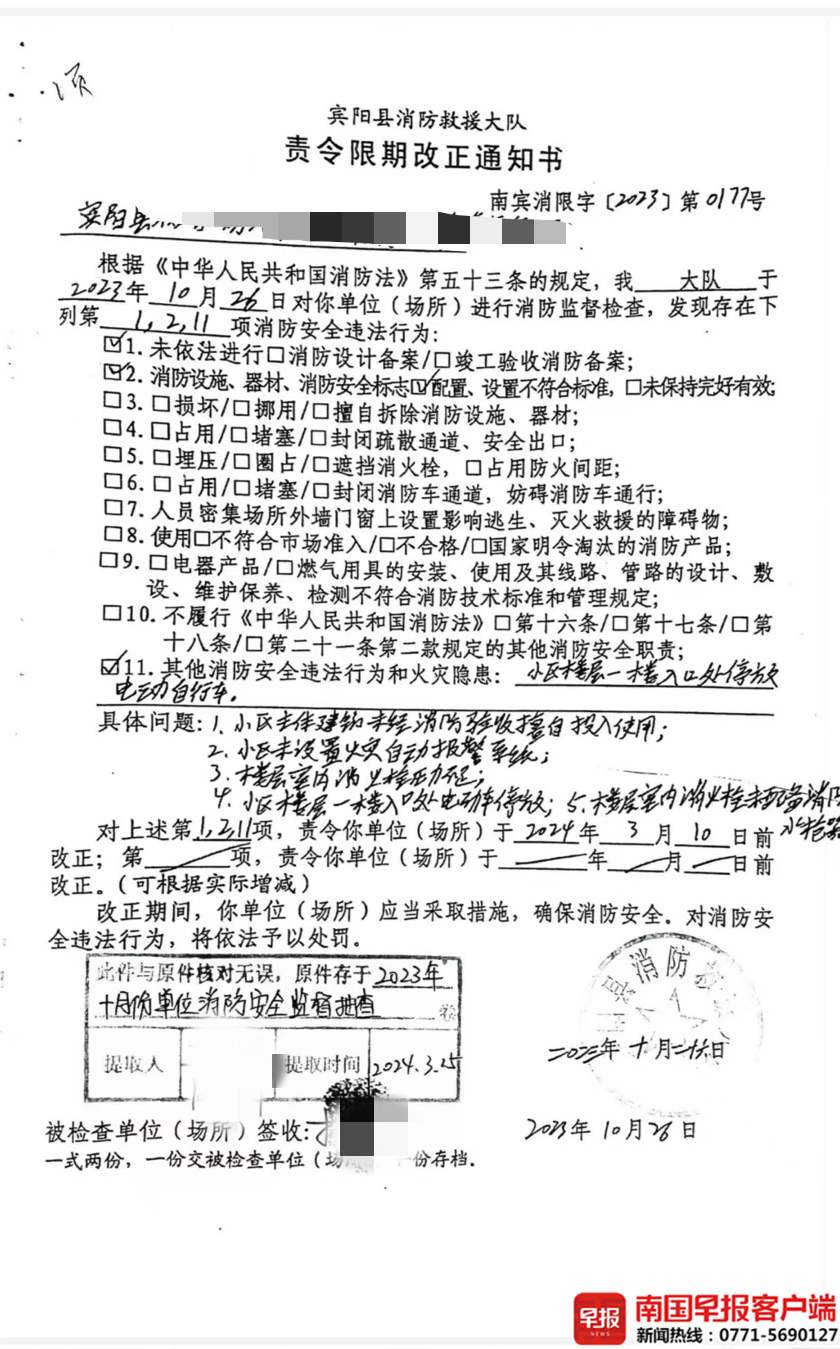 项
宾阳县消防救援大队
责令限期改正通知书
南宾消限字〔2023〕第0177号
宾阳县
根据《中华人民共和国消防法》第五十三条的规定，我 大队 于
2023年 10 月 26 日对你单位（场所）进行消防监督检查，发现存在下
列第 1,2,11 项消防安全违法行为：
☑1. 未依法进行□消防设计备案/□竣工验收消防备案；
☑2. 消防设施、器材、消防安全标志☑配置、设置不符合标准，□未保持完好有效；
□3. □损坏/□挪用/□擅自拆除消防设施、器材；
□4. □占用/□堵塞/□封闭疏散通道、安全出口；
□5. □埋压/□圈占/□遮挡消火栓，□占用防火间距；
□6. □占用/□堵塞/□封闭消防车通道，妨碍消防车通行；
□7. 人员密集场所外墙门窗上设置影响逃生、灭火救援的障碍物；
□8. 使用□不符合市场准入/□不合格/□国家明令淘汰的消防产品；
□9. □电器产品/□燃气用具的安装、使用及其线路、管路的设计、敷
设、维护保养、检测不符合消防技术标准和管理规定；
□10. 不履行《中华人民共和国消防法》□第十六条/□第十七条/□第
十八条/□第二十一条第二款规定的其他消防安全职责；
☑11. 其他消防安全违法行为和火灾隐患：小区楼层一楼入口处停放
电动自行车.
具体问题：1. 小区主体建筑未经消防验收擅自投入使用；
2. 小区未设置火灾自动报警系统；
3. 楼层室内消火栓压力低；
4. 小区楼层一楼入口处电动车停放；5. 楼层室内消火栓未配备消防
水枪
对上述第1,2,11项，责令你单位（场所）于 2024 年 3 月 10 日前
改正；第 项，责令你单位（场所）于 年 月 日前
改正。（可根据实际增减）
改正期间，你单位（场所）应当采取措施，确保消防安全。对消防安
全违法行为，将依法予以处罚。
此件与原件核对无误，原件存于2023年
十月份单位消防安全监督抽查 卷
提取人 提取时间 2024.3.25
县消防救
二〇二三年十月二十六日
被检查单位（场所）签收：
2023年10月26日
一式两份，一份交被检查单位（场 份存档。
早报
NEWS
南国早报客户端
新闻热线：0771-5690127